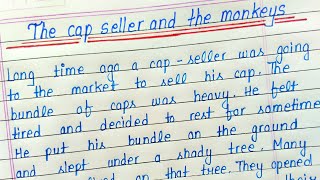 The cap seller and the monkeys
Long time ago a cap - seller was going
to the market to sell his cap. The
bundle of caps was heavy. He felt
tired and decided to rest for sometime
He put his bundle on the ground
and slept under a shady tree. Many
on that tree. They opened